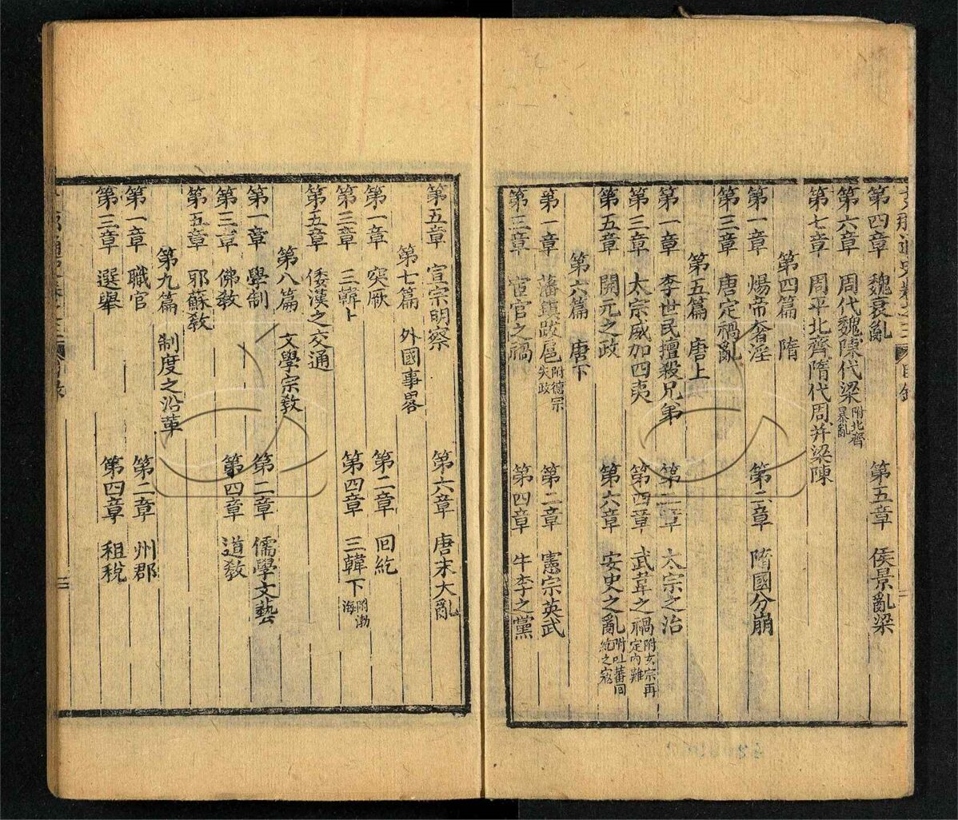 支那通史卷之三 目錄
第四章 魏衰亂 第五章 侯景亂梁
第六章 周代魏陳代梁 附北齊暴亂
第七章 周平北齊隋代周幷梁陳
第四篇 隋
第一章 煬帝奢淫 第二章 隋國分崩
第三章 唐定禍亂
第五篇 唐上
第一章 李世民擅殺兄弟 第二章 太宗之治
第三章 太宗威加四夷 第四章 武韋之禍 附玄宗再定內難
第五章 開元之政 第六章 安史之亂 附吐蕃回紇之寇
第六篇 唐下
第一章 藩鎭跋扈 附德宗失政 第二章 憲宗英武
第三章 宦官之禍 第四章 牛李之黨
第五章 宣宗明察 第六章 唐末大亂
第七篇 外國事畧
第一章 突厥 第二章 回紇
第三章 三韓上 第四章 三韓下 附渤海
第五章 倭漢之交通
第八篇 文學宗敎
第一章 學制 第二章 儒學文藝
第三章 佛敎 第四章 道敎
第五章 耶蘇敎
第九篇 制度之沿革
第一章 職官 第二章 州郡
第三章 選舉 第四章 租稅